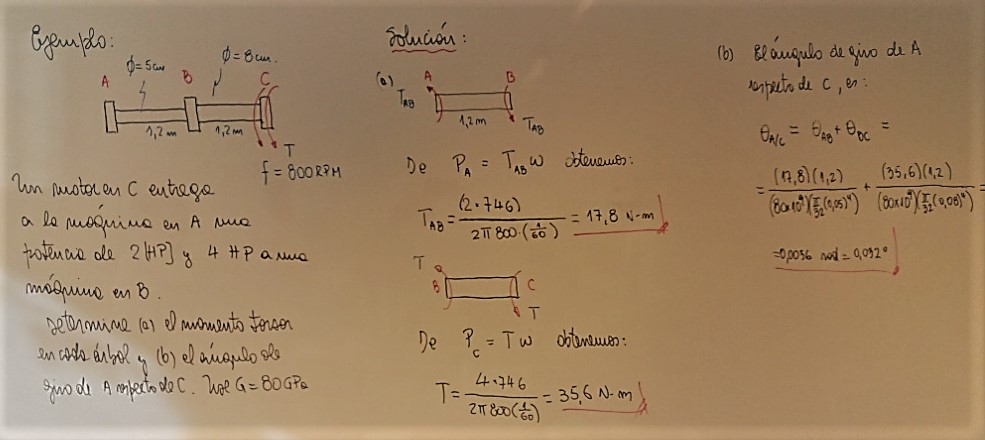 Ejemplo:
ϕ=5cm
ϕ=8cm.
A
B
C
1,2m
1,2m
T
f = 800RPM
Un motor en C entrega
a la máquina en A una
potencia de 2[HP] y 4 HP a una
máquina en B.
Determine (a) el momento torsor
en cada árbol y (b) el ángulo de
giro de A respecto de C. Use G=80GPa
Solución:
(a)
A
B
T_AB
1,2m
T_AB
De P_A = T_AB ω obtenemos:
T_AB = (2·746) / (2π 800·(1/60)) = 17,8 N-m
T
B
C
T
De P_C = T ω obtenemos:
T = 4·746 / (2π 800(1/60)) = 35,6 N-m
(b) El ángulo de giro de A
respecto de C, es:
θ_A/C = θ_AB + θ_BC =
= (17,8)(1,2) / (80x10⁹)(π/32(0,05)⁴) + (35,6)(1,2) / (80x10⁹)(π/32(0,08)⁴) =
=0,0056 rad = 0,032°